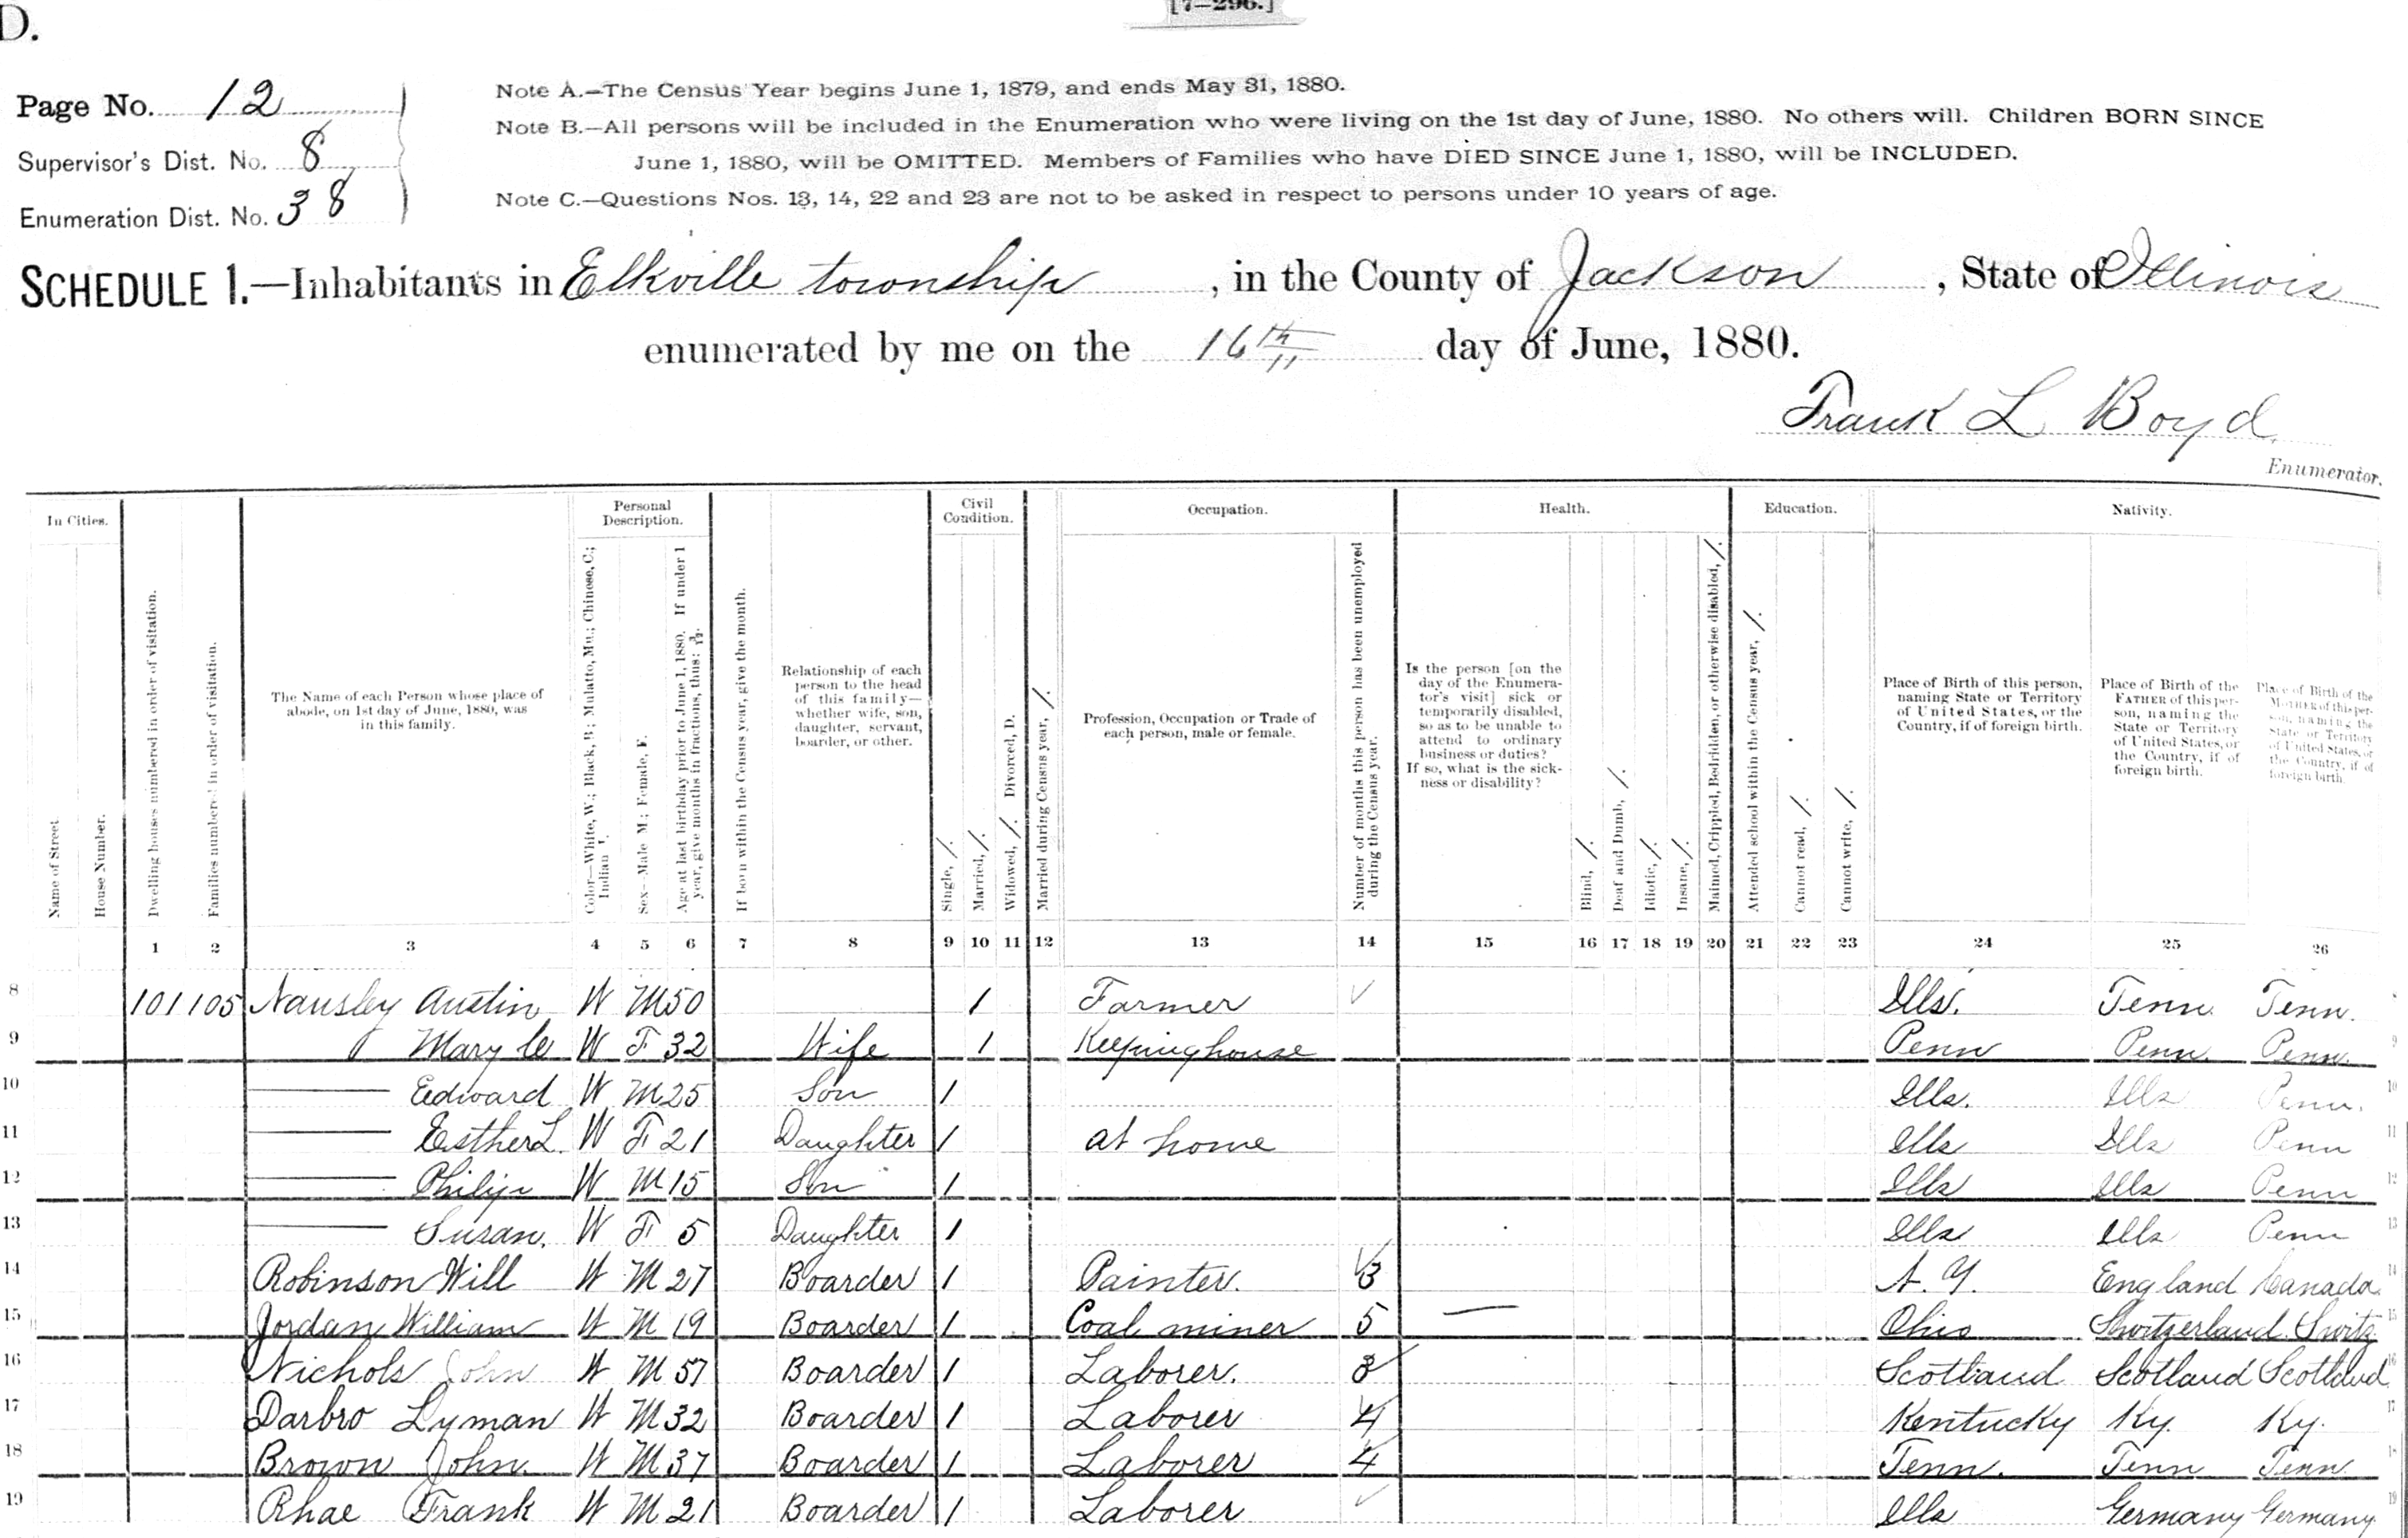 D.
[7—296.]
Page No. 12
Supervisor's Dist. No. 8
Enumeration Dist. No. 38
Note A.—The Census Year begins June 1, 1879, and ends May 31, 1880.
Note B.—All persons will be included in the Enumeration who were living on the 1st day of June, 1880. No others will. Children BORN SINCE
June 1, 1880, will be OMITTED. Members of Families who have DIED SINCE June 1, 1880, will be INCLUDED.
Note C.—Questions Nos. 13, 14, 22 and 23 are not to be asked in respect to persons under 10 years of age.
SCHEDULE 1.—Inhabitants in Elkville township, in the County of Jackson, State of Illinois
enumerated by me on the 16th day of June, 1880.
Frank L Boyd
Enumerator.
In Cities. Personal Description. Civil Condition. Occupation. Health. Education. Nativity.
Name of Street.
House Number.
Dwelling houses numbered in order of visitation.
Families numbered in order of visitation.
The Name of each Person whose place of abode, on 1st day of June, 1880, was in this family.
Color—White, W.; Black, B.; Mulatto, Mu.; Chinese, C.; Indian I.
Sex—Male M.; Female, F.
Age at last birthday prior to June 1, 1880. If under 1 year, give months in fractions, thus: 3/12.
If born within the Census year, give the month.
Relationship of each person to the head of this family—whether wife, son, daughter, servant, boarder, or other.
Single, /.
Married, /.
Widowed, /. Divorced, D.
Married during Census year, /.
Profession, Occupation or Trade of each person, male or female.
Number of months this person has been unemployed during the Census year.
Is the person [on the day of the Enumerator's visit] sick or temporarily disabled, so as to be unable to attend to ordinary business or duties? If so, what is the sickness or disability?
Blind, /.
Deaf and Dumb, /.
Idiotic, /.
Insane, /.
Maimed, Crippled, Bedridden, or otherwise disabled, /.
Attended school within the Census year, /.
Cannot read, /.
Cannot write, /.
Place of Birth of this person, naming State or Territory of United States, or the Country, if of foreign birth.
Place of Birth of the FATHER of this person, naming the State or Territory of United States, or the Country, if of foreign birth.
Place of Birth of the MOTHER of this person, naming the State or Territory of United States, or the Country, if of foreign birth.
1 2 3 4 5 6 7 8 9 10 11 12 13 14 15 16 17 18 19 20 21 22 23 24 25 26
8 101 105 Nausley Austin W M 50 / Farmer Ills. Tenn. Tenn.
9 Mary W F 32 Wife / Keepinghouse Penn Penn. Penn. 9
10 —— Edward W M 25 Son / Ills. Ills Penn. 10
11 —— Esther L. W F 21 Daughter / at home Ills Ills Penn 11
12 —— Philip W M 15 Son / Ills Ills Penn 12
13 —— Susan. W F 5 Daughter / Ills Ills Penn 13
14 Robinson Will W M 27 Boarder / Painter. 3 N. Y. England Canada 14
15 Jordan William W M 19 Boarder / Coal miner 5 — Ohio Switzerland Switz 15
16 Nichols John W M 57 Boarder / Laborer. 3 Scotland Scotland Scotland 16
17 Darbro Lyman W M 32 Boarder / Laborer 4 Kentucky Ky. Ky. 17
18 Brown John. W M 37 Boarder / Laborer 4 Tenn. Tenn Tenn 18
19 Rhae Frank W M 21 Boarder / Laborer Ills Germany Germany 19